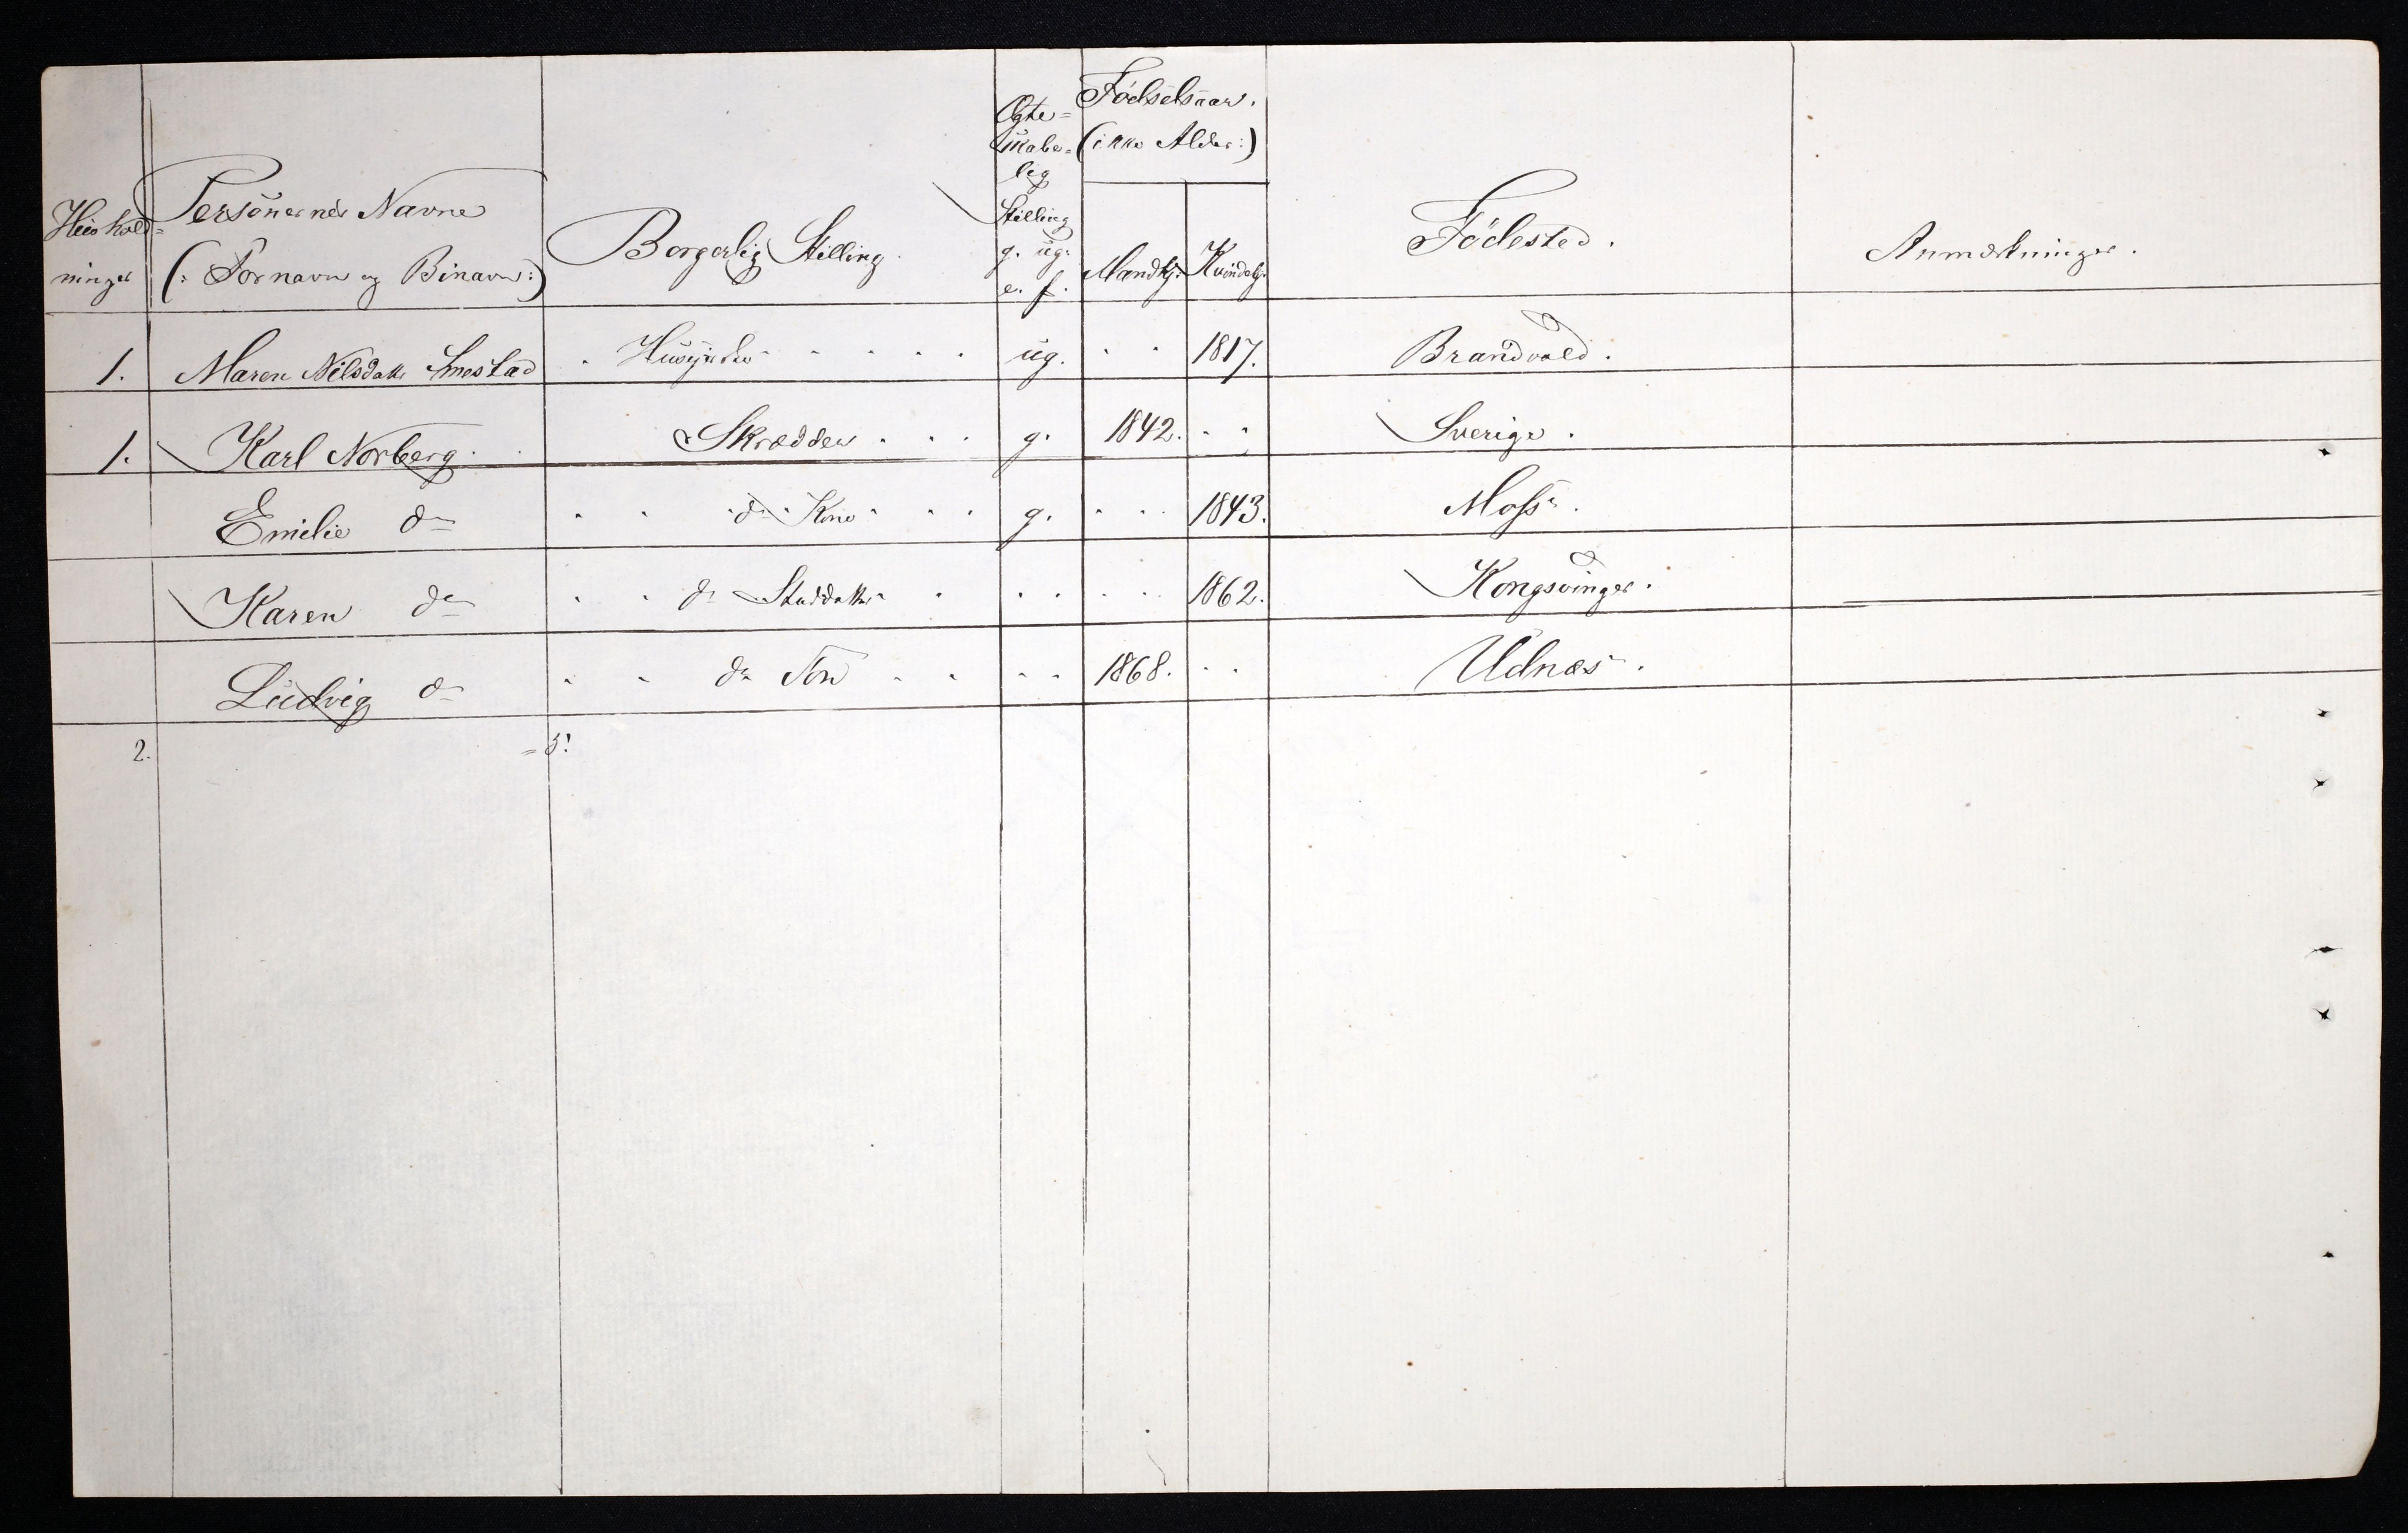 Huushold=
ninger
Personernes Navne
(: Fornavn og Binavn:)
Borgerlig Stilling.
Ægte=
skabe=
lig
Stilling
g. ug.
e. f.
Fødselsaar.
(ikke Alder:)
Mandkj. Kvindekj.
Fødested.
Anmærkninger.
1. Maren Nilsdatter Smestad Huusjente ug. 1817. Brandvold.
1. Karl Norberg. Skrædder g. 1842. Sverige.
Emilie do do Kone g. 1843. Moss.
Karen do do 1862. Kongsvinger.
Ludvig do do Søn 1868. Udnæs.
2. = 5!